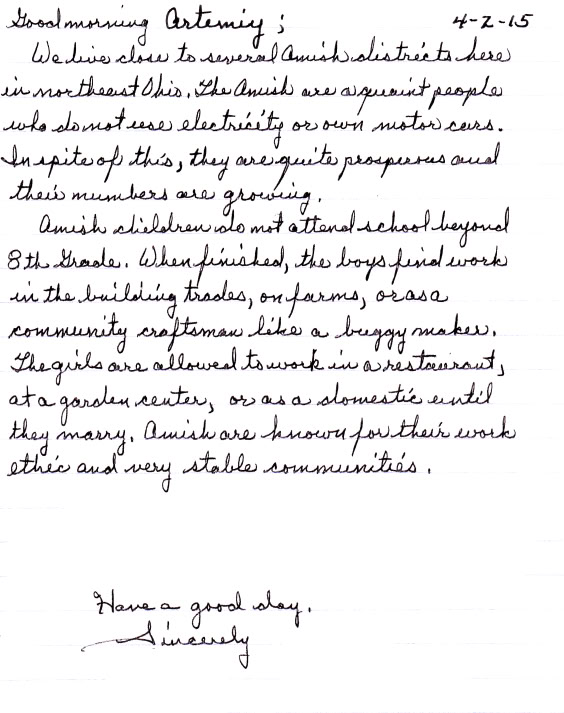 Good morning Artemiy; 4-2-15
We live close to several Amish districts here
in northeast Ohio. The Amish are a quaint people
who do not use electricity or own motor cars.
In spite of this, they are quite prosperous and
their numbers are growing.
Amish children do not attend school beyond
8th Grade. When finished, the boys find work
in the building trades, on farms, or as a
community craftsman like a buggy maker.
The girls are allowed to work in a restaurant,
at a garden center, or as a domestic until
they marry. Amish are known for their work
ethic and very stable communities.
Have a good day.
Sincerely